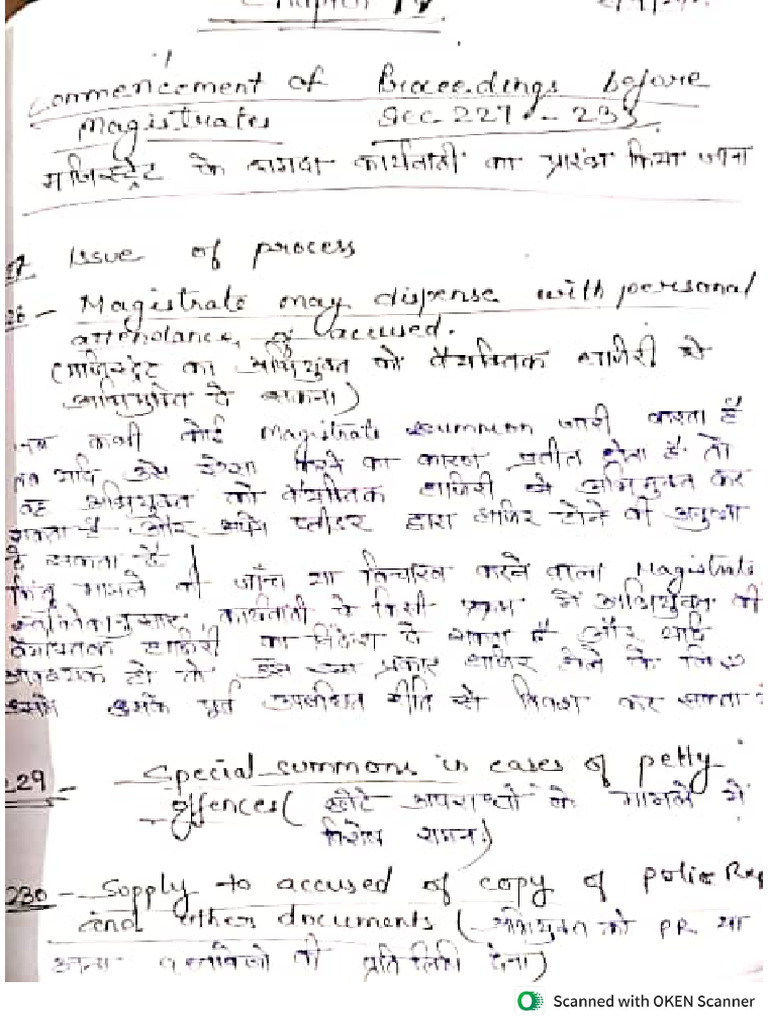 Chapter
Commencement of Proceedings before
Magistrates Sec 227 - 233
मजिस्ट्रेट के समक्ष कार्यवाही का प्रारंभ किया जाना
27 Issue of process
28 - Magistrate may dispense with personal
attendance of accused.
(मजिस्ट्रेट का अभियुक्त को वैयक्तिक हाजिरी से
अभिमुक्ति दे सकना)
जब कभी कोई Magistrate summon जारी करता है
तब यदि उसे ऐसा करने का कारण प्रतीत होता है तो
वह अभियुक्त को वैयक्तिक हाजिरी से अभिमुक्त कर
सकता है और अपने प्लीडर द्वारा हाजिर होने की अनुज्ञा
दे सकता है
किंतु मामले की जाँच या विचारण करने वाला Magistrate
स्वविवेकानुसार, कार्यवाही के किसी प्रक्रम में अभियुक्त की
वैयक्तिक हाजिरी का निदेश दे सकता है और यदि
आवश्यक हो तो उसे इस प्रकार हाजिर होने के लिए
इसमें इसके पूर्व उपबंधित रीति से विवश कर सकता है
229 - Special summons in cases of petty
offences (छोटे अपराधों के मामले में
विशेष समन)
230 - Supply to accused of copy of police Rep
and other documents (अभियुक्त को PR या
अन्य दस्तावेजों की प्रतिलिपि देना)
Scanned with OKEN Scanner